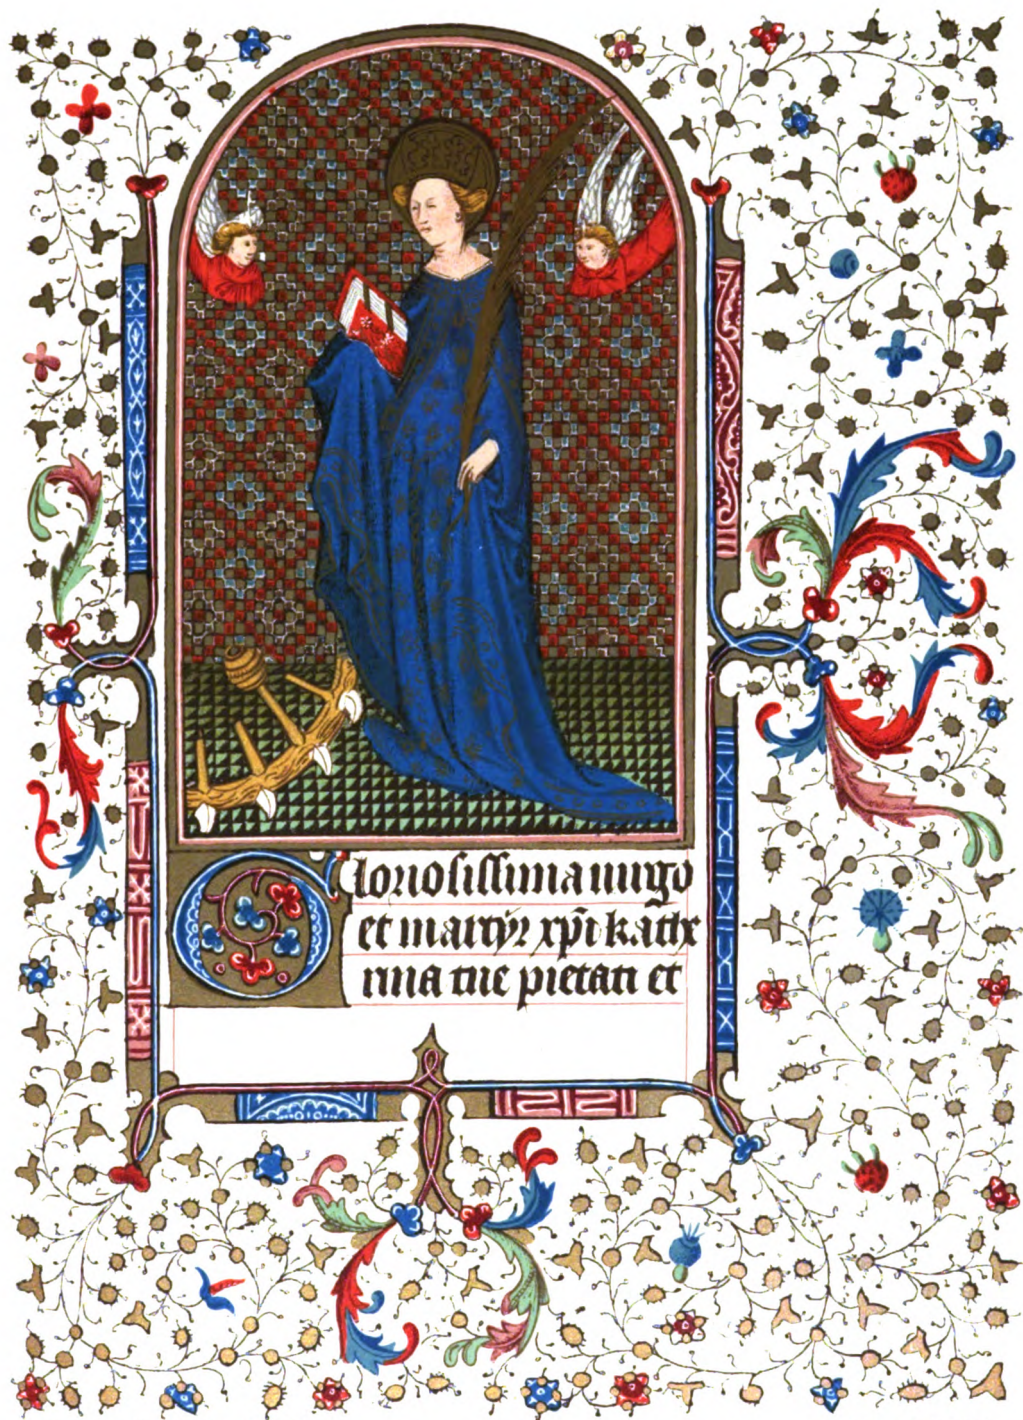 Gloriosissima uirgo
et martyr xp̄i kathe
rina tue pietati et